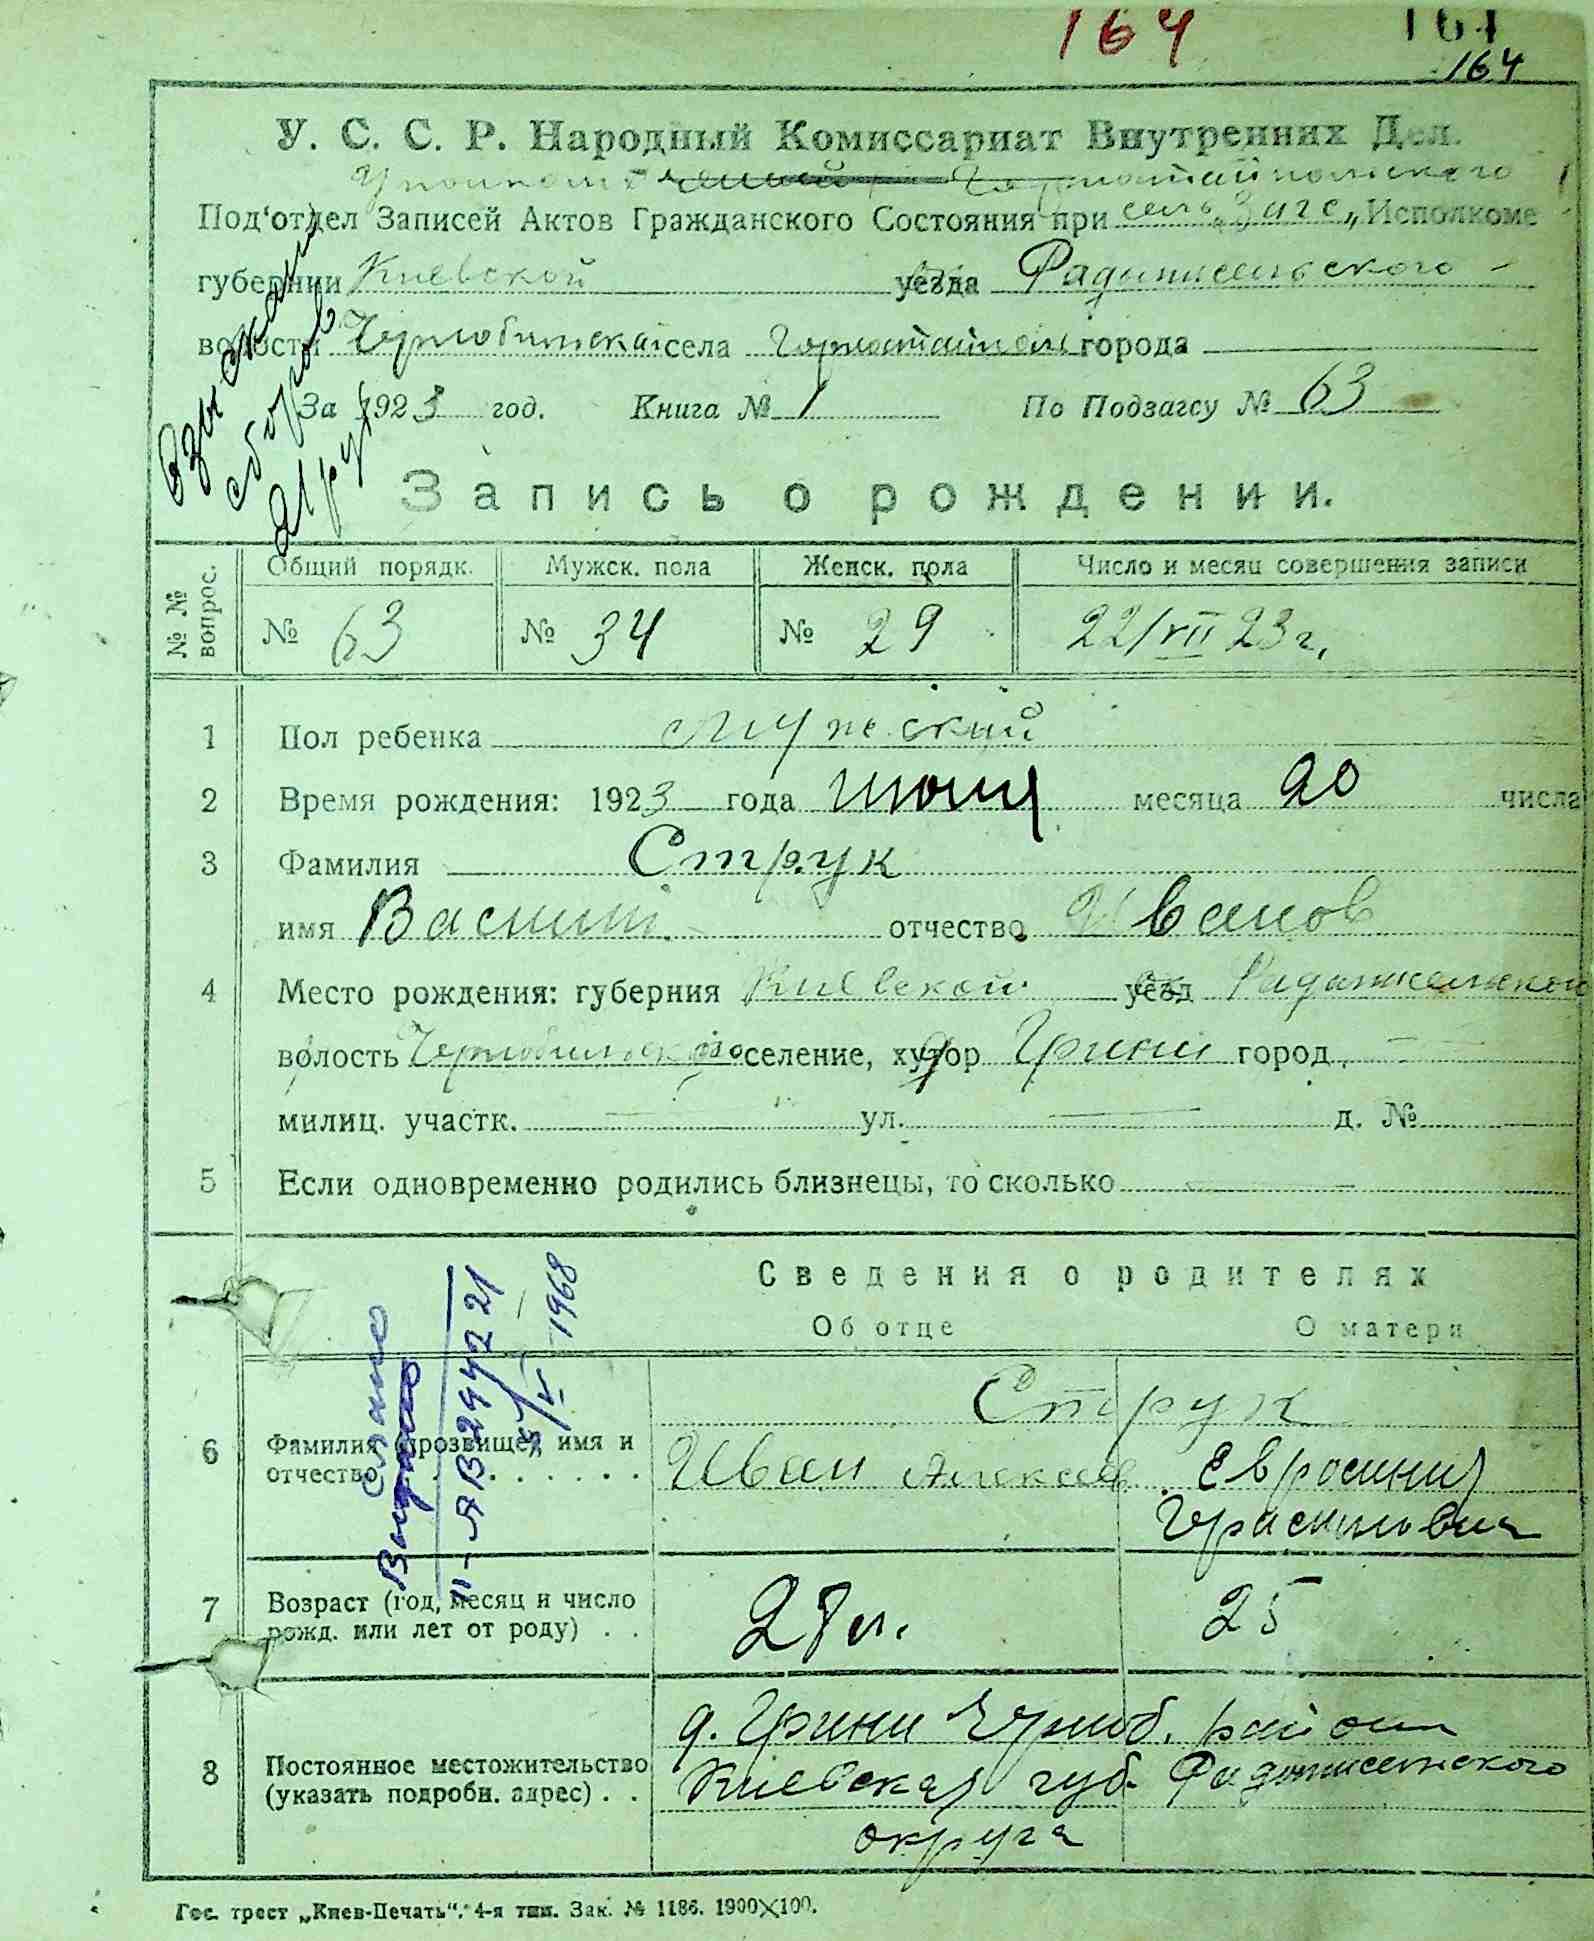 164 164
164
У. С. С. Р. Народный Комиссариат Внутренних Дел.
Горностайпольского
Под'отдел Записей Актов Гражданского Состояния при сель „Загс„ Исполкоме
губернии Киевской уезда Радомисельского
волости Чернобильская села Горностайполь города
За 1923 год. Книга № 1 По Подзагсу № 63
Взыскан
сбор
Запись о рождении.
№ № вопрос. Общий порядк. Мужск. пола Женск. пола Число и месяц совершения записи
№ 63 № 34 № 29 22/VII 23 г.
1 Пол ребенка Мужский
2 Время рождения: 1923 года июля месяца 20 числа
3 Фамилия Струк
имя Василий отчество Иванов
4 Место рождения: губерния Киевской уезд Радомисельской
волость Чернобильской селение, хутор Грини город
милиц. участк. ул. д. №
5 Если одновременно родились близнецы, то сколько
Сведения о родителях
Об отце О матери
Струк
6 Фамилия (прозвище) имя и отчество Иван Алексеев Евросиния
Герасимовна
Выдано
II-ЯВ 294221
1968
7 Возраст (год, месяц и число рожд. или лет от роду) 28 л. 25
д. Грини Черноб. района
8 Постоянное местожительство Киевская губ. Радомисельского
(указать подробн. адрес) округа
Гос. трест „Киев-Печать". 4-я тип. Зак. № 1186. 1900×100.